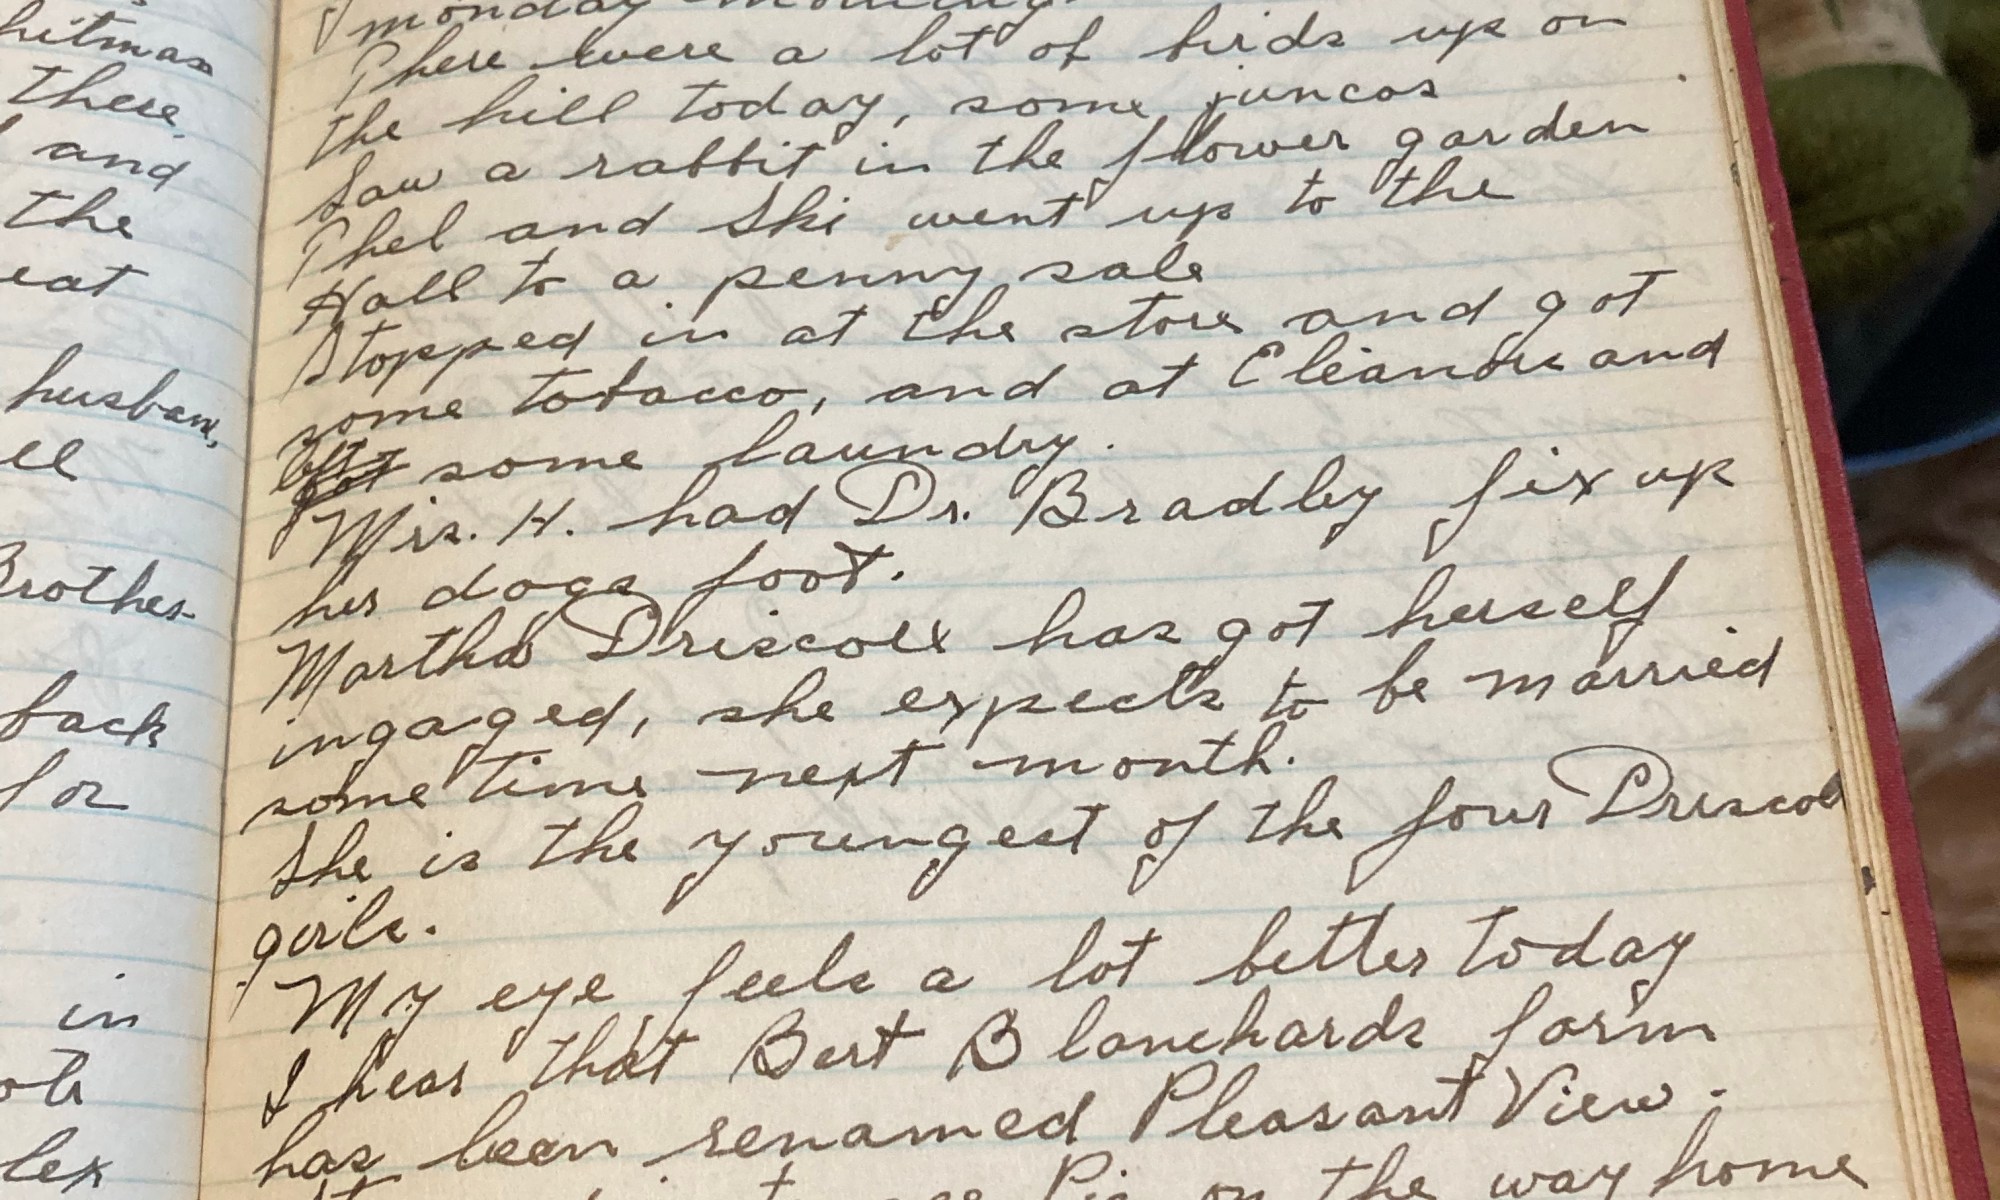 hitman
there,
and
the
eat
husban,
ell
Brother
back
for
in
lex
monday morning.
There were a lot of birds up on
the hill today, some juncos
Saw a rabbit in the flower garden
Phel and Ski went up to the
Hall to a penny sale
Stopped in at the store and got
some tobacco, and at Eleanore and
got some laundry.
Mrs. H. had Dr. Bradley fix up
her dogs foot.
Martha Driscoll has got herself
ingaged, she expects to be married
some time next month.
She is the youngest of the four Driscol
girls.
My eye feels a lot better today
I hear that Bert Blanchards farm
has been renamed Pleasant View.
on the way home